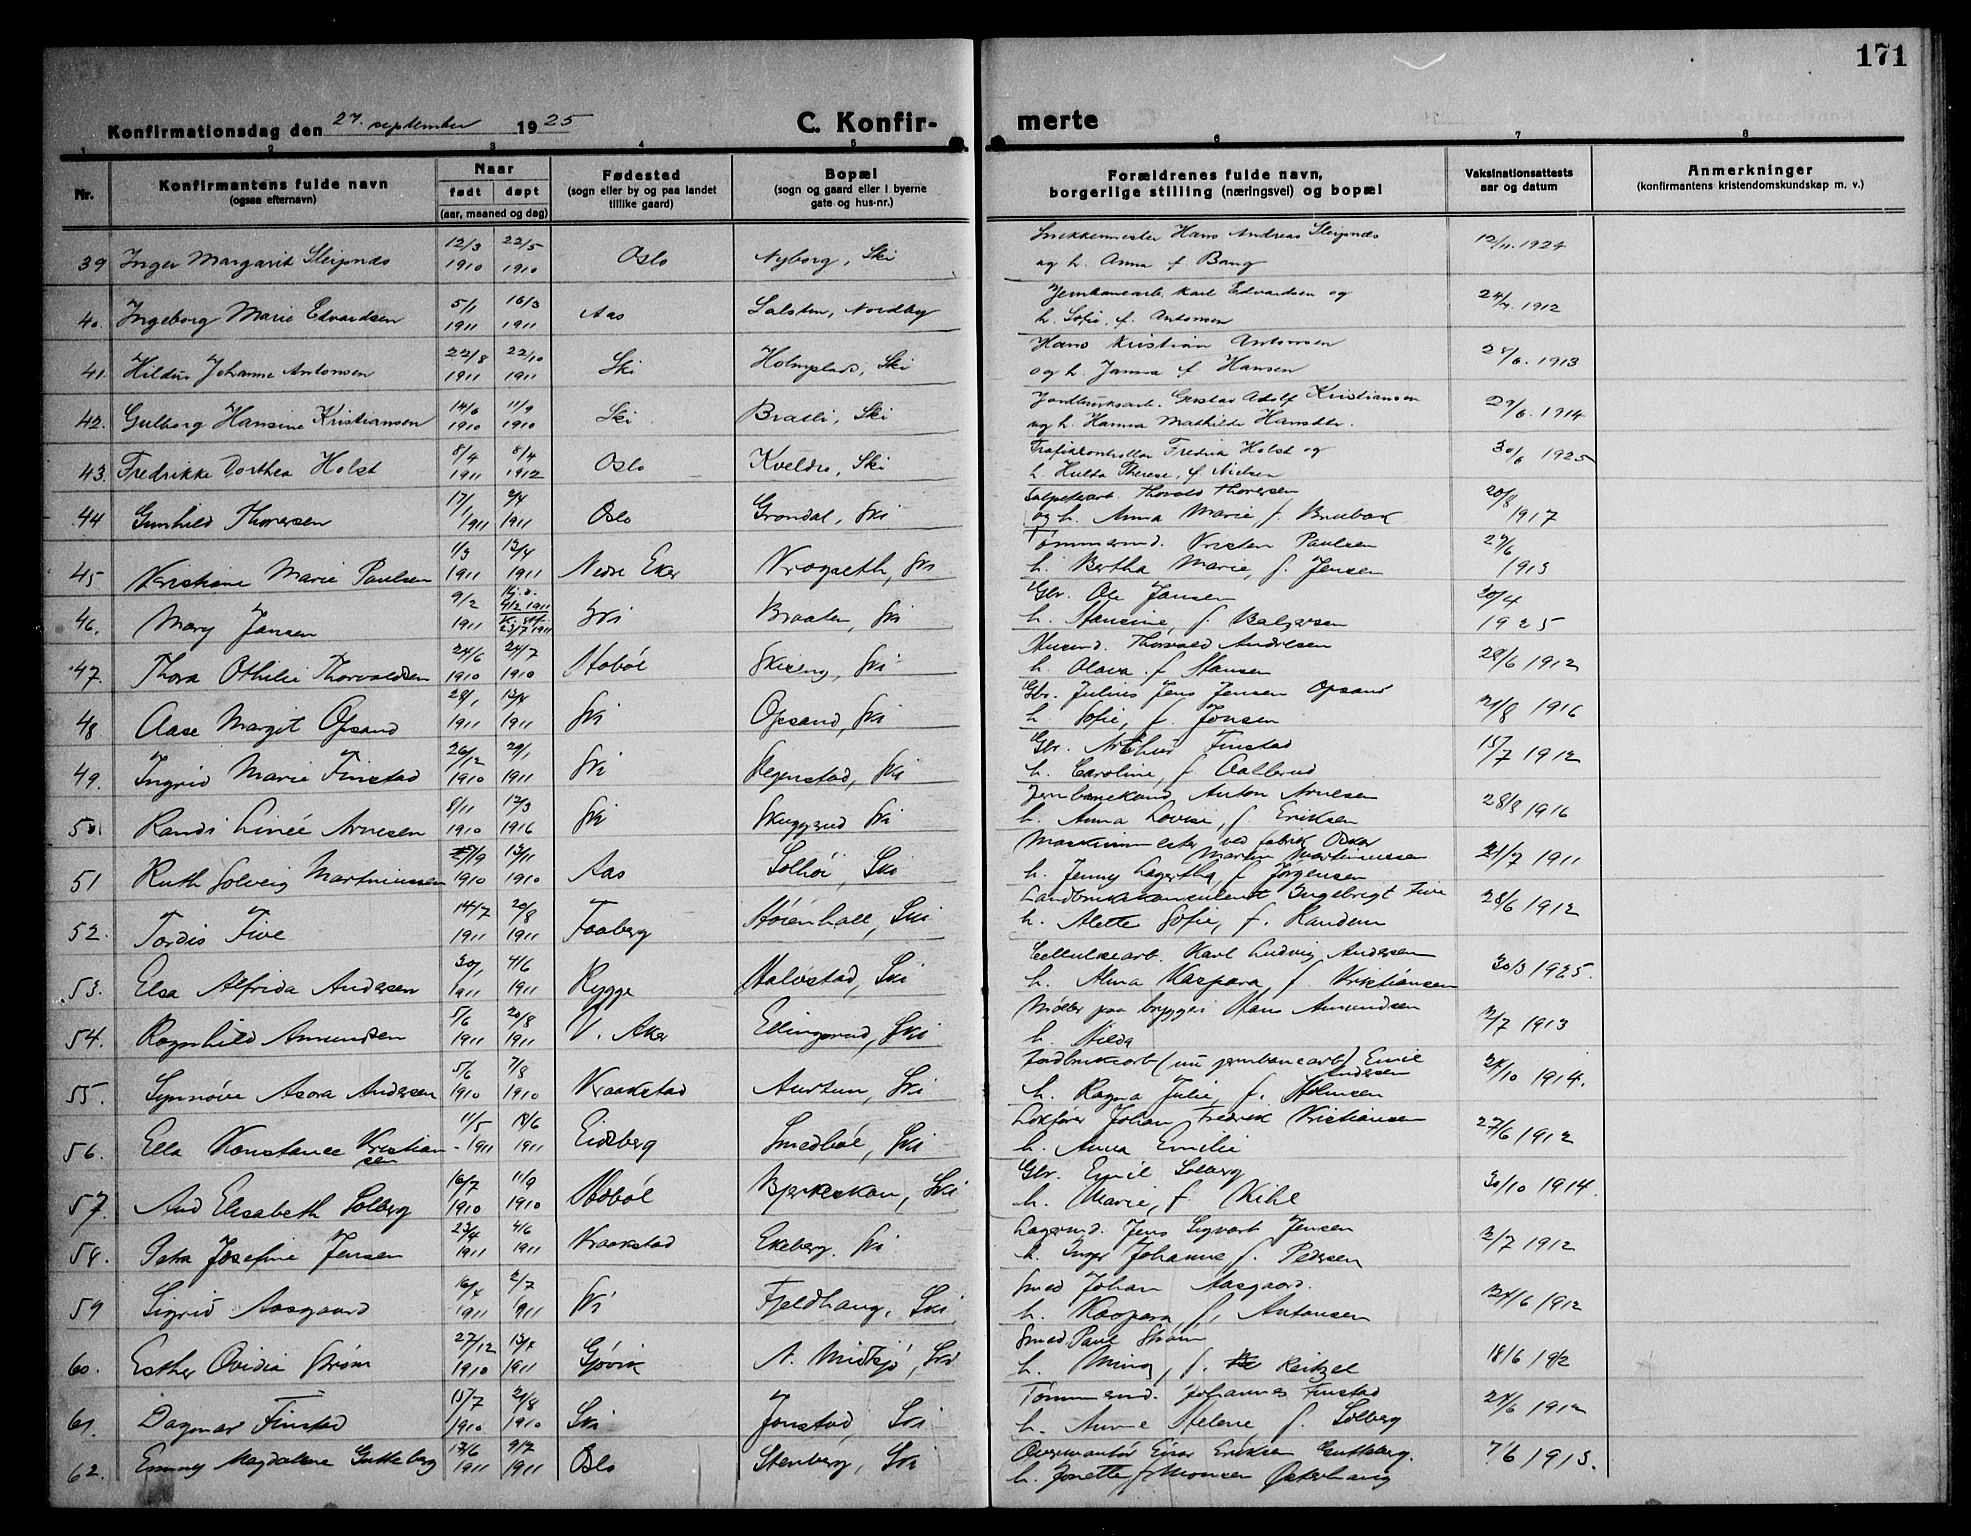 171
Konfirmationsdag den 27. september 1925
C. Konfir-
merte
1 2 3 4 5 6 7 8
Nr.
Konfirmantens fulde navn
(ogsaa efternavn)
Naar
født døpt
(aar, maaned og dag)
Fødested
(sogn eller by og paa landet
tillike gaard)
Bopæl
(sogn og gaard eller i byerne
gate og hus-nr.)
Forældrenes fulde navn,
borgerlige stilling (næringsvei) og bopæl
Vaksinationsattests
aar og datum
Anmerkninger
(konfirmantens kristendomskundskap m. v.)
12/3 22/5 Snekkermester Hans Andreas Sleipnæs 12/11. 1924
39 Inger Margarit Sleipnæs 1910 1910 Oslo Nyborg, Ski og h. Anna f. Bang
5/1 16/3 Jernbanearb. Karl Edvardsen og
40. Ingeborg Marie Edvardsen 1911 1911 Aas Nordby h. Sofie, f. Antonsen 1912
22/8 22/10 Hans Kristian Antonsen
41. Hildur Johanne Antonsen 1911 1911 Ski Holmplads, Ski og h. Janna f. Hansen 1913
14/6 11/9 Jordbruksarb. Gustav Adolf Kristiansen 29/6. 1914
42. Gulborg Hansine Kristiansen 1910 1910 Ski Bratli, Ski og h. Hanna Mathilde
8/4 8/4 Trafikkontrollør Fredrik Holst og 30/6 1925
43. Fredrikke Dorthea Holst 1911 1912 Oslo Kveldro, Ski h. Hulda Therese, f. Nielsen
17/1 2/4 Thorvald Thoresen 20/8
44 Gunhild Thoresen 1911 1911 Oslo Grøndal, Ski og h. Anna Marie f. Brubak 1917
1/3 Tømmermd. Kristen Paulsen 29/6
45 Kristiane Marie Paulsen 1911 1911 Nedre Eker Krogseth, Ski h. Bertha Marie, f. Jensen 1913
9/2 Hj. d. 4/2 1911 Gbr. Ole Jansen 30/4
46. Mary Jansen 1911 23/7 1911 Ski Braaten, Ski h. Hansine, f. 1925
24/6 24/7 Thorvald Andresen
47. Thora Othilie Thorvaldsen 1910 1910 Hobøl Skieng, Ski h. Olava f. Hansen 28/6 1912
28/1 Gbr. Julius Jens Jensen Opsand
48 Aase Margit Opsand 1911 1911 Ski Opsand, Ski h. Sofie, f. Jonsen 31/8 1916
26/12 29/1 Gbr. Arthur Finstad 15/7 1912
49. Ingrid Marie Finstad 1910 1911 Ski Hegenstad, Ski h. Caroline, f. Aallerud
8/11 12/3 Jernbanekond. Anton Arnesen 28/8 1916
50 Randi Linée Arnesen 1910 1916 Ski Skuggerud Ski h. Anna Lovise, f. Eriksen
Maskinmester ved fabrik Oskar
Martin Martiniussen
51 Ruth Solveig Martiniussen 1910 1910 Aas Solhøi, Ski h. Jenny Lagertha, f. Jørgensen 21/7 1911
14/7 20/8 Landbrukskonsulent Ingebrigt Five 28/6 1912
52. Tordis Five 1911 1911 Faaberg Høienhall, Ski h. Alette Sofie, f. Randem
30/1 4/6 Cellulosearb. Karl Ludvig Andersen 30/3 1925.
53. Elsa Alfrida Andersen 1911 1911 Rygge Halvstad, Ski h. Alma Kaspara, f. Kristiansen
5/6 20/8 paa bryggeri Hans Amundsen
54. Ragnhild Amundsen 1911 1911 V. Aker Ellingsrud, Ski h. Hilda 2/7 1913
5/6 7/8 Jordbruksarb (nu jernbanearb) Emil
Andersen
55. Synnøve Asora Andersen 1910 1910 Kraakstad Aurtun, Ski h. Ragna Julie, f. Holmsen 1914.
11/5 18/6 Lokfører Johan Fredrik Kristiansen 27/6 1912
56. Ella Konstance Kristian- 1911 1911 Eidsberg Smedbøl, Ski h. Anna Emilie
sen
16/7 11/9 Gbr. Emil Solberg 30/10 1914.
57. Aud Elisabeth Solberg 1910 1910 Hobøl Bjerkeskau, Ski h. Marie, f. Kihl
23/4 4/6 Lagermd. Jens Sigvart Jensen
58. Petra Josefine Jensen 1911 1911 Kraakstad Ekeberg, Ski h. Inger Johanne f. Pedersen 2/7 1912
16/4 2/7 Smed Johan Aasgaard.
59 Sigrid Aasgaard 1911 1911 Ski Fjeldhaug, Ski h. Kaspara f. Antonsen 1912
27/12 Smed Paul Strøm
60. Esther Ovidia Strøm 1910 1911 Gjøvik N. Midsjø, Ski h. f. Reitzel 18/6 1912
15/7 21/8 Tømmermd. Johannes Finstad
61. Dagmar Finstad 1910 1910 Ski Jonstad, Ski h. Anne Helene f. Solberg 1912
13/6 9/7 Einar Eriksen Gutteberg. 7/6 1913.
62. Emmy Magdalene Gutteberg 1911 1911 Oslo Stenberg, Ski h. Jonette f. Monsen Østerhaug